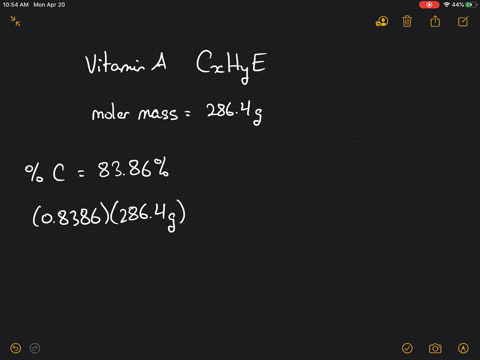 10:54 AM Mon Apr 20
44%
Vitamin A CxHyE
molar mass = 286.4g
% C = 83.86%
(0.8386)(286.4g)